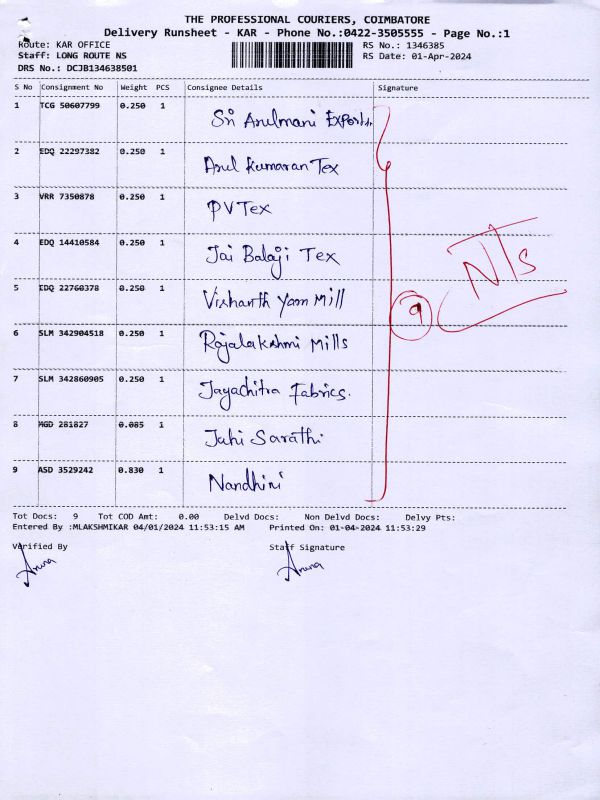 THE PROFESSIONAL COURIERS, COIMBATORE
Delivery Runsheet - KAR - Phone No.:0422-3505555 - Page No.:1
Route: KAR OFFICE RS No.: 1346385
Staff: LONG ROUTE NS RS Date: 01-Apr-2024
DRS No.: DCJB134638501
S No Consignment No Weight PCS Consignee Details Signature
1 TCG 50607799 0.250 1 Sri Arulmani Exports.
2 EDQ 22297382 0.250 1 Arul Kumaran Tex
3 VRR 7350878 0.250 1 PV Tex
4 EDQ 14410584 0.250 1 Jai Balaji Tex
5 EDQ 22760378 0.250 1 Vishanth Yarn Mill
6 SLM 342904518 0.250 1 Rajalakshmi Mills
7 SLM 342860905 0.250 1 Jayachitra Fabrics.
8 MGD 281827 0.085 1 Sarathi
9 ASD 3529242 0.830 1 Nandhini
9
N/s
Tot Docs: 9 Tot COD Amt: 0.00 Delvd Docs: Non Delvd Docs: Delvy Pts:
Entered By :MLAKSHMIKAR 04/01/2024 11:53:15 AM Printed On: 01-04-2024 11:53:29
Verified By Staff Signature
Aruna Aruna